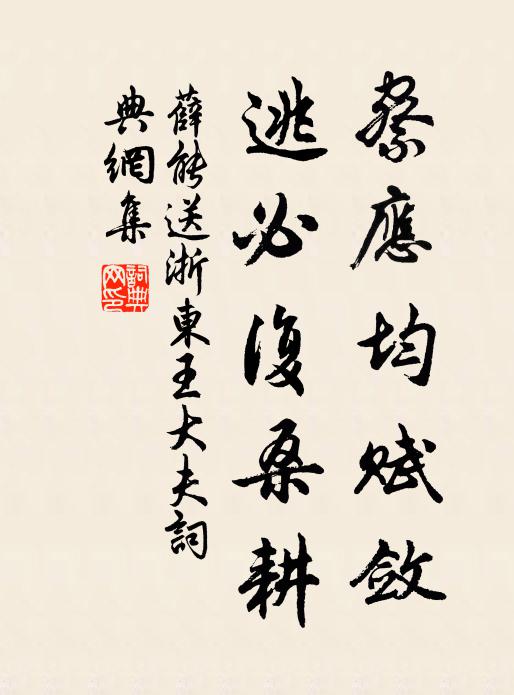 察應均賦斂
逃必復桑耕
薛能送浙東王大夫詞
典網集
詞典
网印